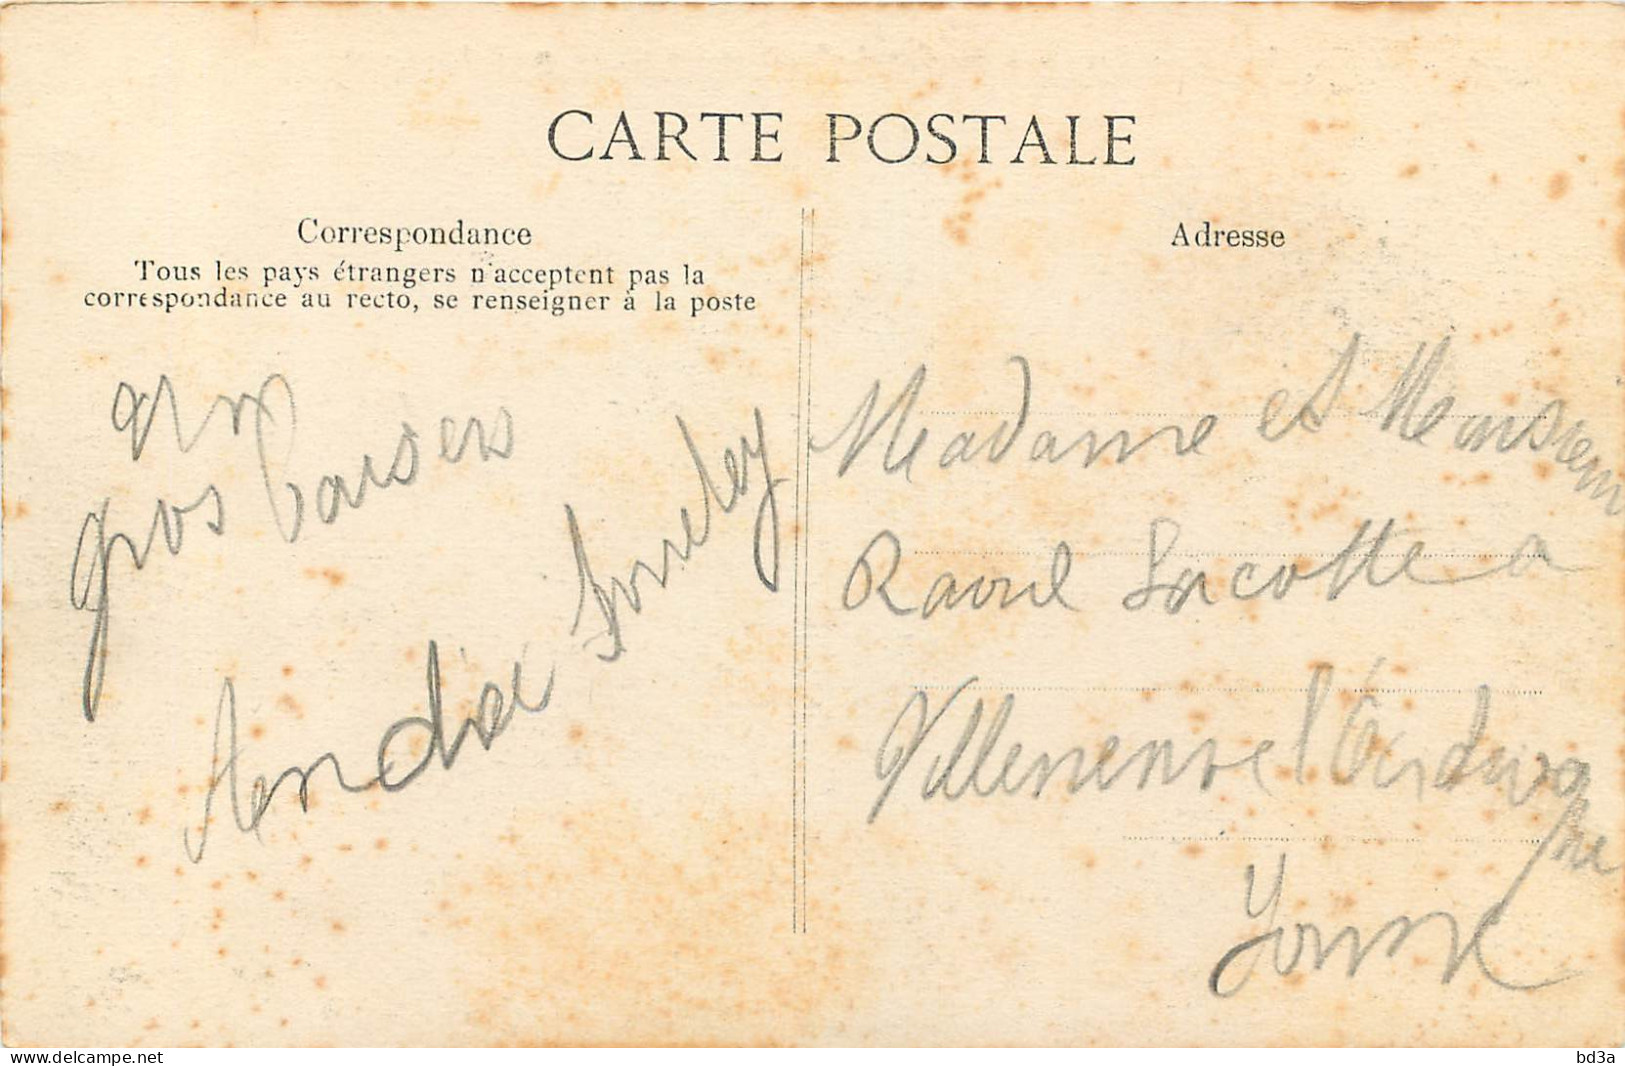 CARTE POSTALE
Correspondance
Tous les pays étrangers n'acceptent pas la
correspondance au recto, se renseigner à la poste
un
gros baisers
André
Adresse
Madame et Monsieur
Raoul Lacotte a
Villeneuve l'Archevê
que
Yonne
www.delcampe.net
bd3a